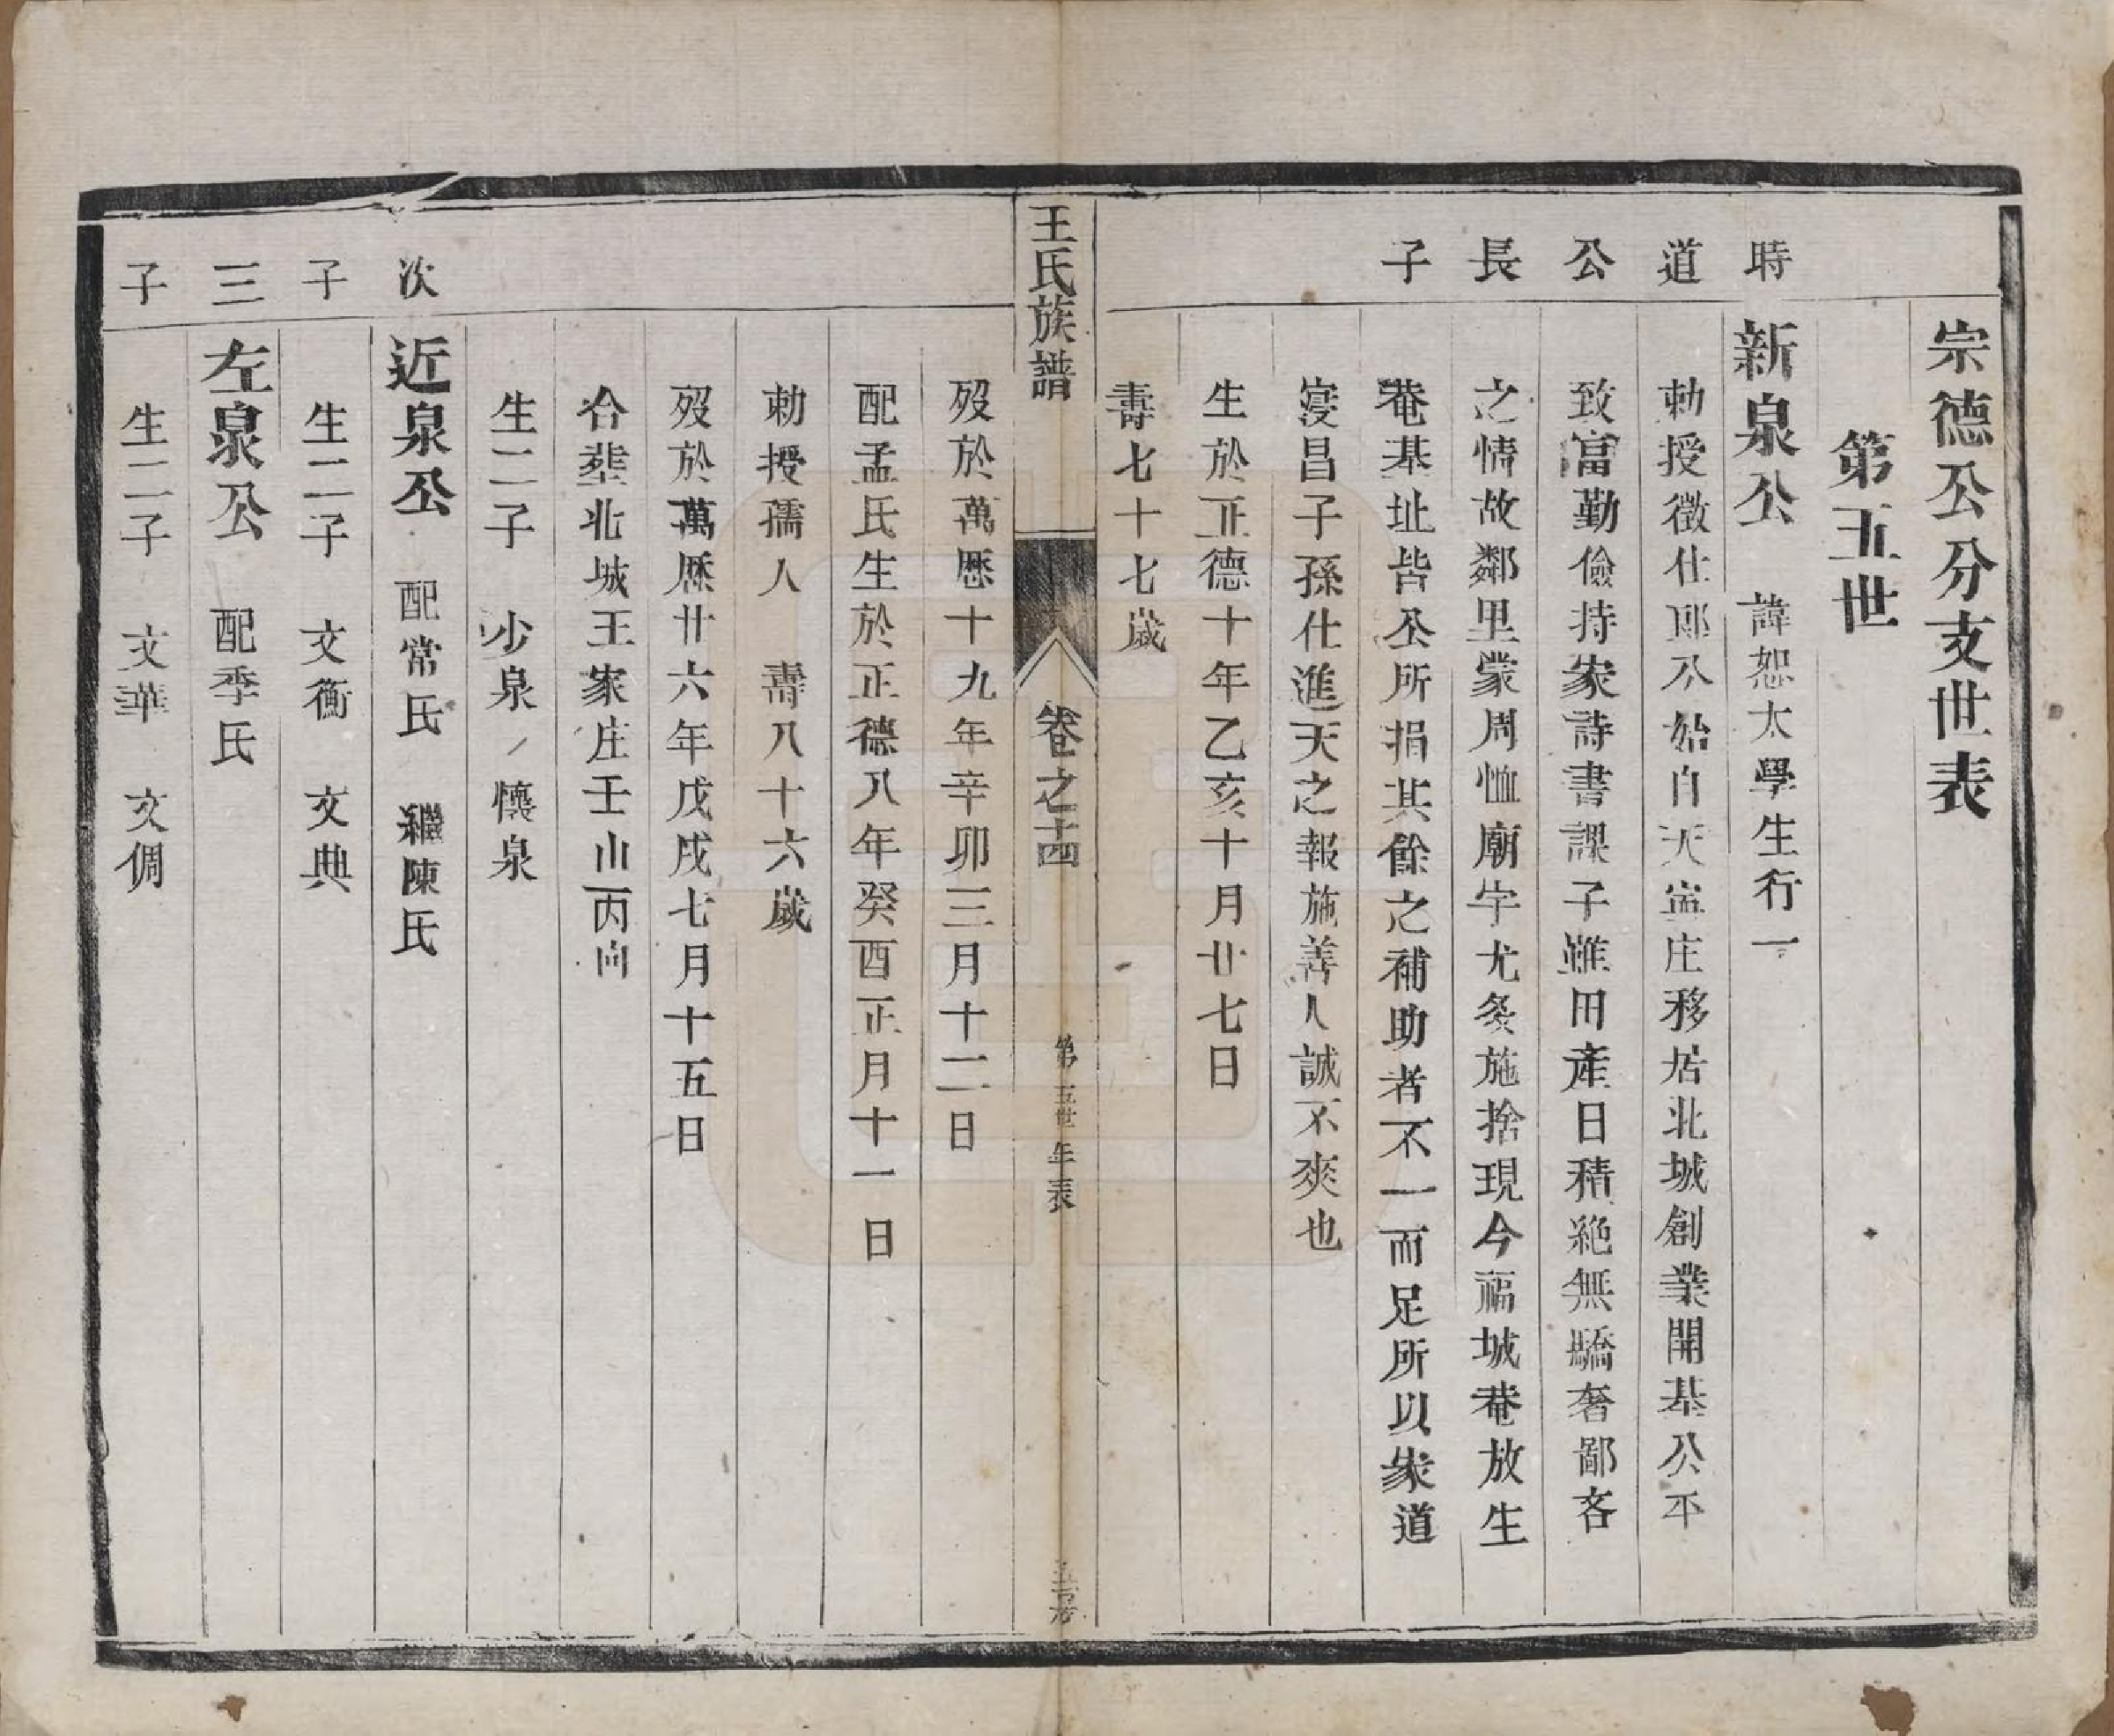 宗德公分支世表
第五世
時道公長子
新泉公 諱恕太學生行一
勅授徵仕郎公始自天寍庄移居北城創業開基公平
致富勤儉持家詩書課子雖田產日積絕無驕奢鄙吝
之情故鄰里蒙周恤廟宇尤多施捨現今福城菴放生
菴基址皆公所捐其餘之補助者不一而足所以家道
寖昌子孫仕進天之報施善人誠不爽也
生於正德十年乙亥十月廿七日
壽七十七歲
王氏族譜 卷之十四 第五世年表
歿於萬歷十九年辛卯三月十二日
配孟氏生於正德八年癸酉正月十一日
勅授孺人 壽八十六歲
歿於萬歷廿六年戊戌七月十五日
合塟北城王家庄壬山丙向
生二子 少泉 懷泉
次子
近泉公 配常氏 繼陳氏
生二子 文衡 文典
三子
左泉公 配季氏
生二子 文華 文倜